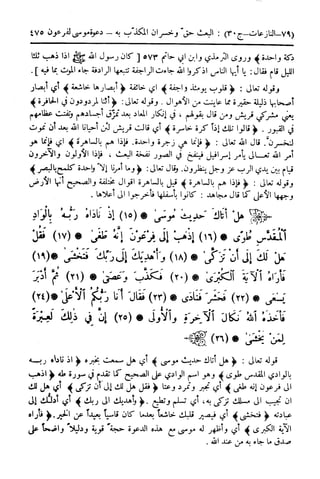 (٧٩–النازعات–ج٣٠) : البعث حقّ وخسران المكذّب به – دعوة موسى لفرعون ٤٧٥
دكة واحدة ﴾ وروى الترمذي وابن أبي حاتم ٥٧٣ [ كان رسول الله ﷺ إذا ذهب ثلثا
الليل قام فقال: يا أيها الناس اذكروا الله جاءت الراجفة تتبعها الرادفة جاء الموت بما فيه ] .
وقوله تعالى : ﴿ قلوب يومئذ واجفة ﴾ أي خائفة ﴿ أبصارها خاشعة ﴾ أي أبصار
أصحابها ذليلة حقيرة مما عاينت من الأهوال . وقوله تعالى : ﴿ أئنا لمردودون في الحافرة ﴾
يعني مشركي قريش ومن قال بقولهم ، في إنكار المعاد بعد تمزق أجسادهم وتفتت عظامهم
في القبور . ﴿ قالوا تلك إذاً كرة خاسرة ﴾ أي قالت قريش لئن أحيانا الله بعد أن نموت
لنخسرن . قال الله تعالى : ﴿ فإنما هي زجرة واحدة. فإذا هم بالساهرة ﴾ أي فإنما هو
أمر الله تعالى يأمر إسرافيل فينفخ في الصور نفخة البعث ، فإذا الأولون والآخرون
قيام بين يدي الرب عز وجل ينظرون. وقال تعالى: ﴿ وما أمرنا إلا واحدة كلمح بالبصر ﴾
وقوله تعالى : ﴿ فإذا هم بالساهرة ﴾ قيل بالساهرة أقوال مختلفة والصحيح أنها الأرض
وجهها الأعلى كما قال مجاهد : كانوا بأسفلها فأخرجوا إلى أعلاها .
هَلْ أَتَاكَ حَدِيثُ مُوسَى * (١٥) إِذْ نَادَاهُ رَبُّهُ بِالْوَادِ
الْمُقَدَّسِ طُوًى * (١٦) اذْهَبْ إِلَى فِرْعَوْنَ إِنَّهُ طَغَى * (١٧) فَقُلْ
هَلْ لَكَ إِلَى أَنْ تَزَكَّى * (١٨) وَأَهْدِيَكَ إِلَى رَبِّكَ فَتَخْشَى * (١٩)
فَأَرَاهُ الْآيَةَ الْكُبْرَى * (٢٠) فَكَذَّبَ وَعَصَى * (٢١) ثُمَّ أَدْبَرَ
يَسْعَى * (٢٢) فَحَشَرَ فَنَادَى * (٢٣) فَقَالَ أَنَا رَبُّكُمُ الْأَعْلَى * (٢٤)
فَأَخَذَهُ اللَّهُ نَكَالَ الْآخِرَةِ وَالْأُولَى * (٢٥) إِنَّ فِي ذَلِكَ لَعِبْرَةً
لِمَنْ يَخْشَى * (٢٦)
قوله تعالى : ﴿ هل أتاك حديث موسى ﴾ أي هل سمعت بخبره ﴿ إذ ناداه ربه
بالوادي المقدس طوى ﴾ وهو اسم الوادي على الصحيح كما تقدم في سورة طه ﴿ اذهب
إلى فرعون إنه طغى ﴾ أي تجبر وتمرد وعتا ﴿ فقل هل لك إلى أن تزكى ﴾ أي هل لك
أن تجيب إلى مسلك تزكى به ، أي تسلم وتطيع . ﴿ وأهديك إلى ربك ﴾ أي أدلك إلى
عبادته ﴿ فتخشى ﴾ أي فيصير قلبك خاشعاً بعدما كان قاسياً بعيداً عن الخير. ﴿ فأراه
الآية الكبرى ﴾ أي وأظهر له موسى مع هذه الدعوة حجة قوية ودليلاً واضحاً على
صدق ما جاء به من عند الله .